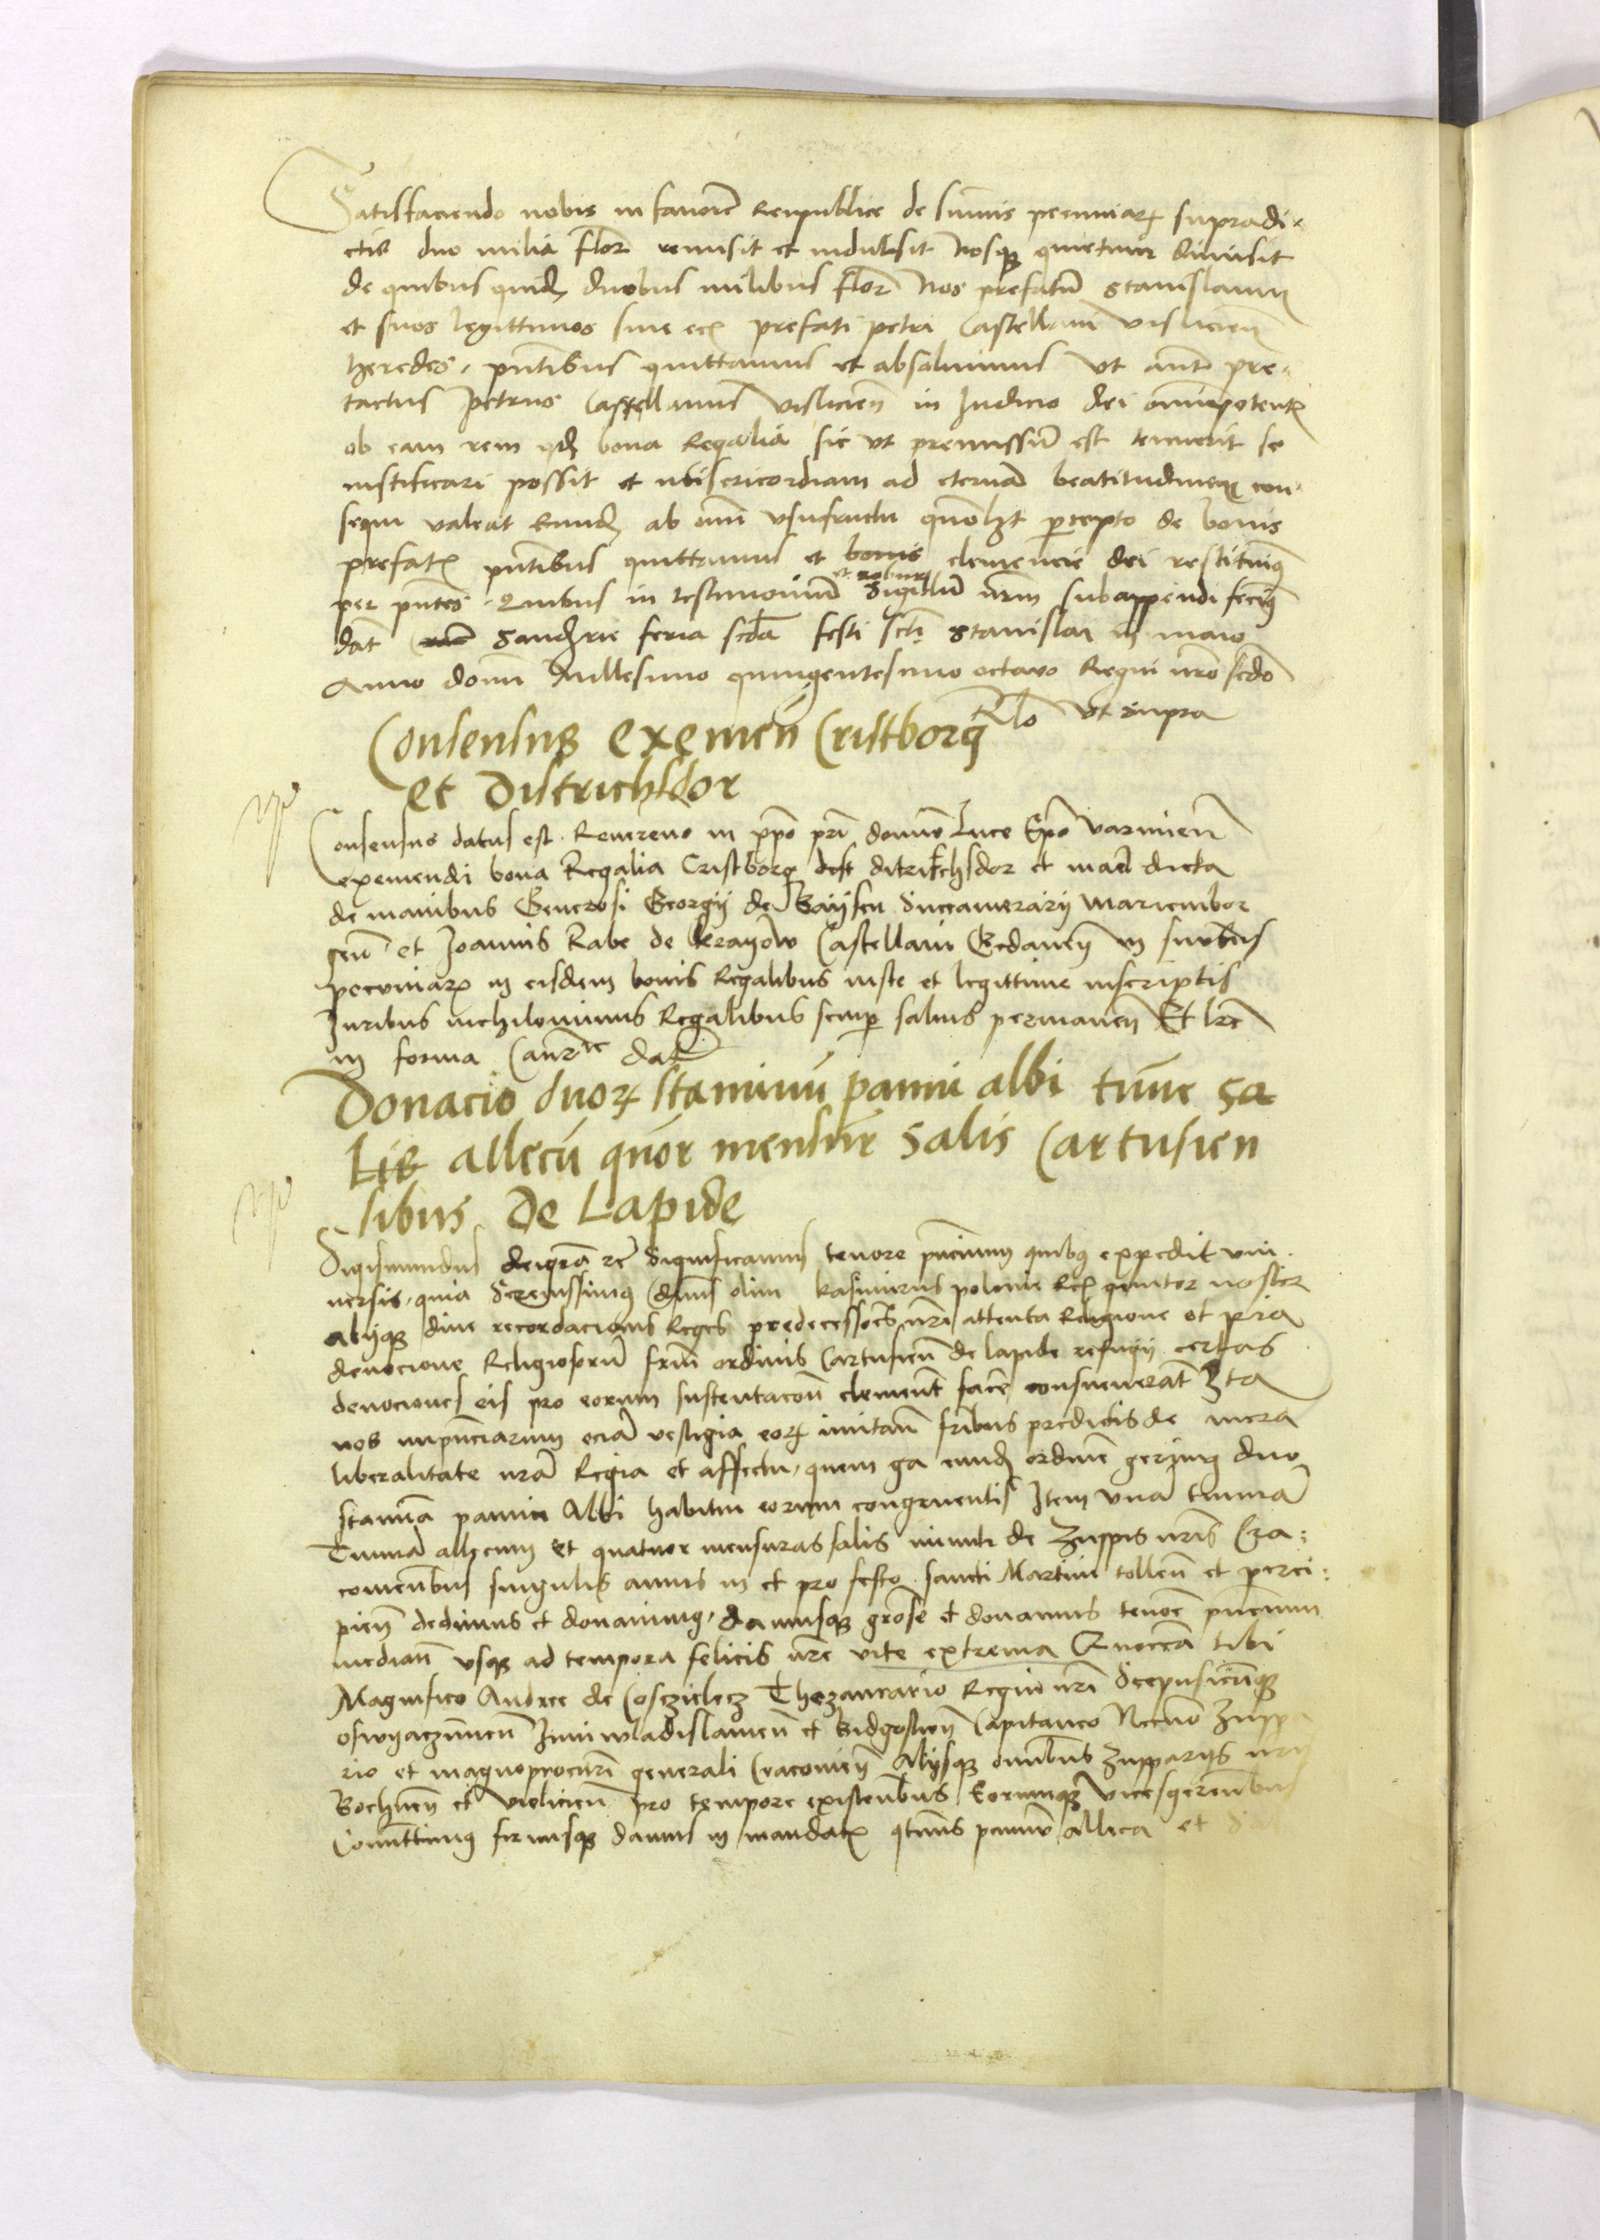 Satisfaciendo nobis in favorē Reipublice de sum̄is pecuniaꝝ supradi-
ctis duo milia floꝛ remisit et indulsit Nosqꝫ quietum dimisit
de quibus quidꝫ duobus milibus floꝛ Nos prefatū Stanislaum
et suos legittimos sive eciꝫ prefati petri Castellani vislicieñ
heredes, pñtibus quittamus et absolvimus Vt aut̄ pre-
tactus Petrus Castellanus vislicieñ in Iudicio dei omnipotentꝭ
ob eam rem qđ bona Regalia sic ut premissū est tenuerit se
iustificari possit et misericordiam ad eternā beatitudinem con-
sequi valeat Eundꝫ ab omī usufructu quomōlꝫt percepto de bonis
prefatꝭ pñtibus quittamus et bonis clemencie dei restituimꝰ
per pñtes. Quibus in testimoniū et robur Sigillū nrm̄ subappendi fecimꝰ
dat̄ Sandꝫrie feria scd̄a festi sct̄i Stanislai in maio
Anno domī Millesimo quingentesimo octavo Regni nrō scdō
Rlō ut supra
Consensus exemeñ Cristborg
et Districhsdor
Consensus datus est Reverendo in xp̄o pr̄i domīo Luce Ep̄o varmieñ
exemendi bona Regalia Cristborg ditrikchsdor et dicta
de manibus Generosi Georgij de Bayseu Succamerarij Mariembor
geñ et Ioannis Rabe de Castellani Gedaneñ in sum̄bus
pecuniaꝝ in eisdem bonis Regalibus iuste et legittime inscriptis
Iuribus nichilominus Regalibus semꝑ salvis permaneñ Et lrē
in forma Canꝛie dat̄
Donacio duoꝝ staminū panni albi tūne Sa
lis allecū quoꝛ mensur Salis Cartusien
sibus De Lapide
Sigismundus dei grā ꝛc̄ Significamus tenore pñcium quibꝰ expedit uni-
versis, quia Serenissimꝰ dñus olim kasimirus polonie Rex genitor noster
alijqꝫ dive recordacionis Reges predecessores nrī attenta Religione et pia
devocione Religiosorū frūm ordinis Cartusieñ de lapide refugij certas
devociones eis pro eorum sustentacōn clement̄ facē consueverāt Ita
nos impñciarum eciā vestigia eoꝝ imitañ fribus predictis de mera
liberalitate nrā Regia et affectu, quem ga eundꝫ ordinē gerimꝰ duo
stamīa panni Albi habitui eorum congruentis Item unā tunnā
Tunnā allecum et quatuor mensuras salis minuti de Zuppis nrīs Cra-
covienībus singulis annis in et pro festo Sancti Martini tolleñ et perci-
pieñ dedimus et donavimꝰ, damusqꝫ grōse et donamus tenorē pñcium
mediañ usqꝫ ad tempora felicis nrē vite extrema Quocca tibi
Magnifico Andree de Cosczielecz Thezaurario Regni nrī Scepusieñqꝫ
Oswyaczimieñ Iuniwladislavieñ et Bidgostieñ Capitaneo Necnō Zuppa
rio et magnoprocurī generali Cracovieñ Alijsqꝫ omībus Zupparijs nrīs
Bochneñ et vielicieñ pro tempore existenībus Eorumqꝫ vicesgerentibus
Comittimꝰ firmisqꝫ damus in mandatꝭ qtinus pannū alleca et